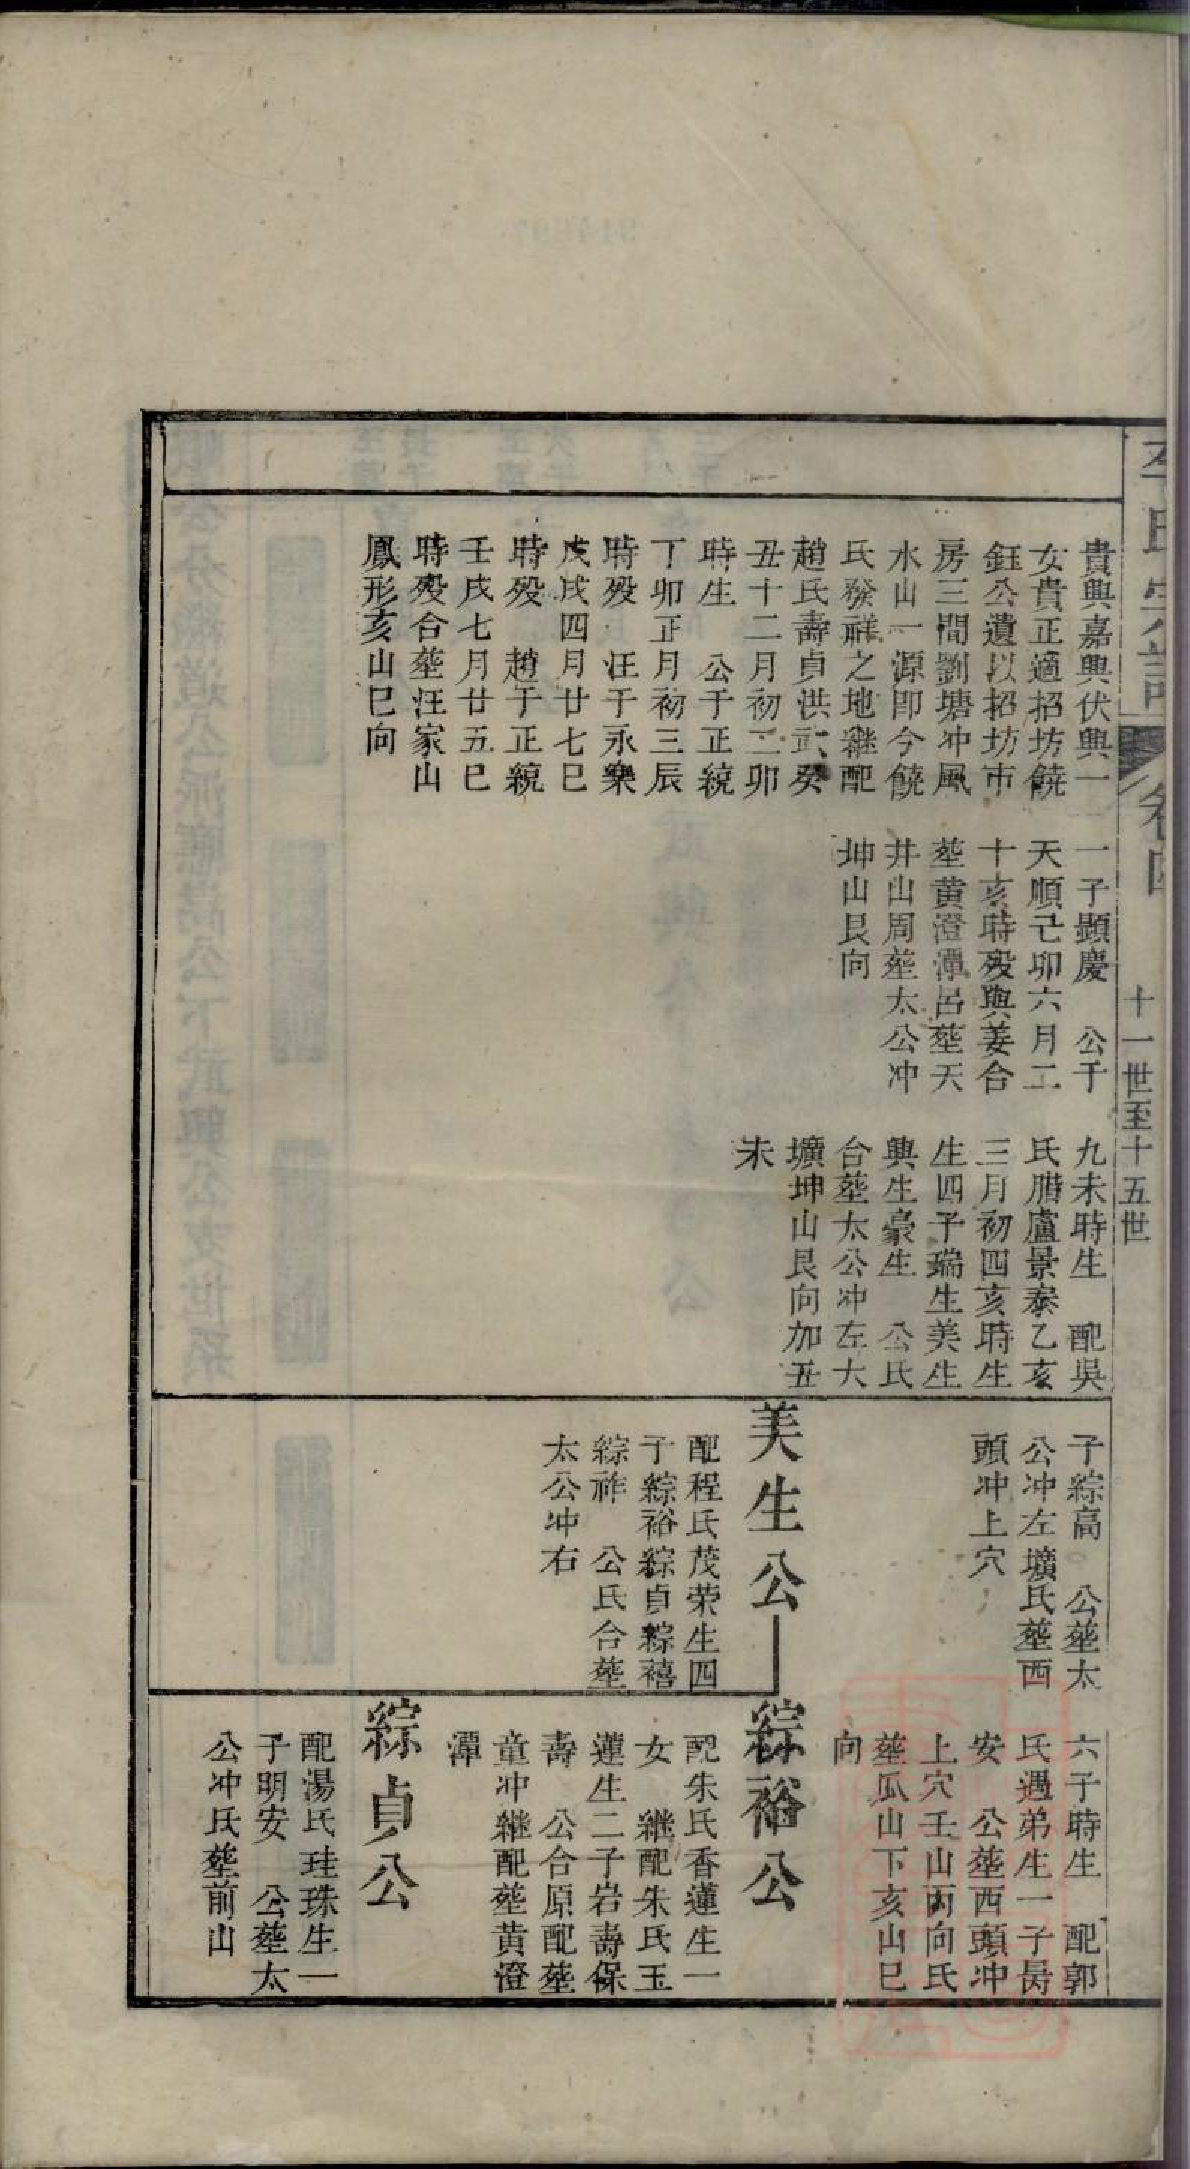 李氏宗譜
卷四
十一世至十五世
貴興嘉興伏興一
女貴正適招坊饒
鈺公遺以招坊市
房三間劉塘冲風
水山一源即今饒
氏發祥之地繼配
趙氏壽貞洪武癸
丑十二月初二卯
時生 公于正統
丁卯正月初三辰
時殁 汪于永樂
戊戌四月廿七巳
時殁 趙于正統
壬戌七月廿五巳
時殁合塟汪家山
鳳形亥山巳向
一子顯慶 公于
天順己卯六月二
十亥時殁與姜合
塟黄澄潭呂塟天
井山周塟太公冲
坤山艮向
九未時生 配吳
氏腊盧景泰乙亥
三月初四亥時生
生四子瑞生美生
興生豪生 公氏
合塟太公冲左大
壙坤山艮向加丑
未
子綜高 公塟太
公冲左壙氏塟西
頭冲上穴
美生公
配程氏茂荣生四
子綜裕綜貞綜禧
綜祚 公氏合塟
太公冲右
六子時生 配郭
氏遇弟生一子昺
安 公塟西頭冲
上穴壬山丙向氏
塟瓜山下亥山巳
向
綜裕公
配朱氏香蓮生一
女 繼配朱氏玉
蓮生二子岩壽保
壽 公合原配塟
童冲繼配塟黄澄
潭
綜貞公
配湯氏珪珠生一
子明安 公塟太
公冲氏塟前山